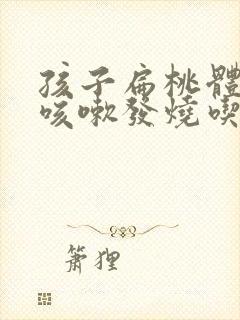 孩子扁桃體
咳嗽發燒喫
簫狸